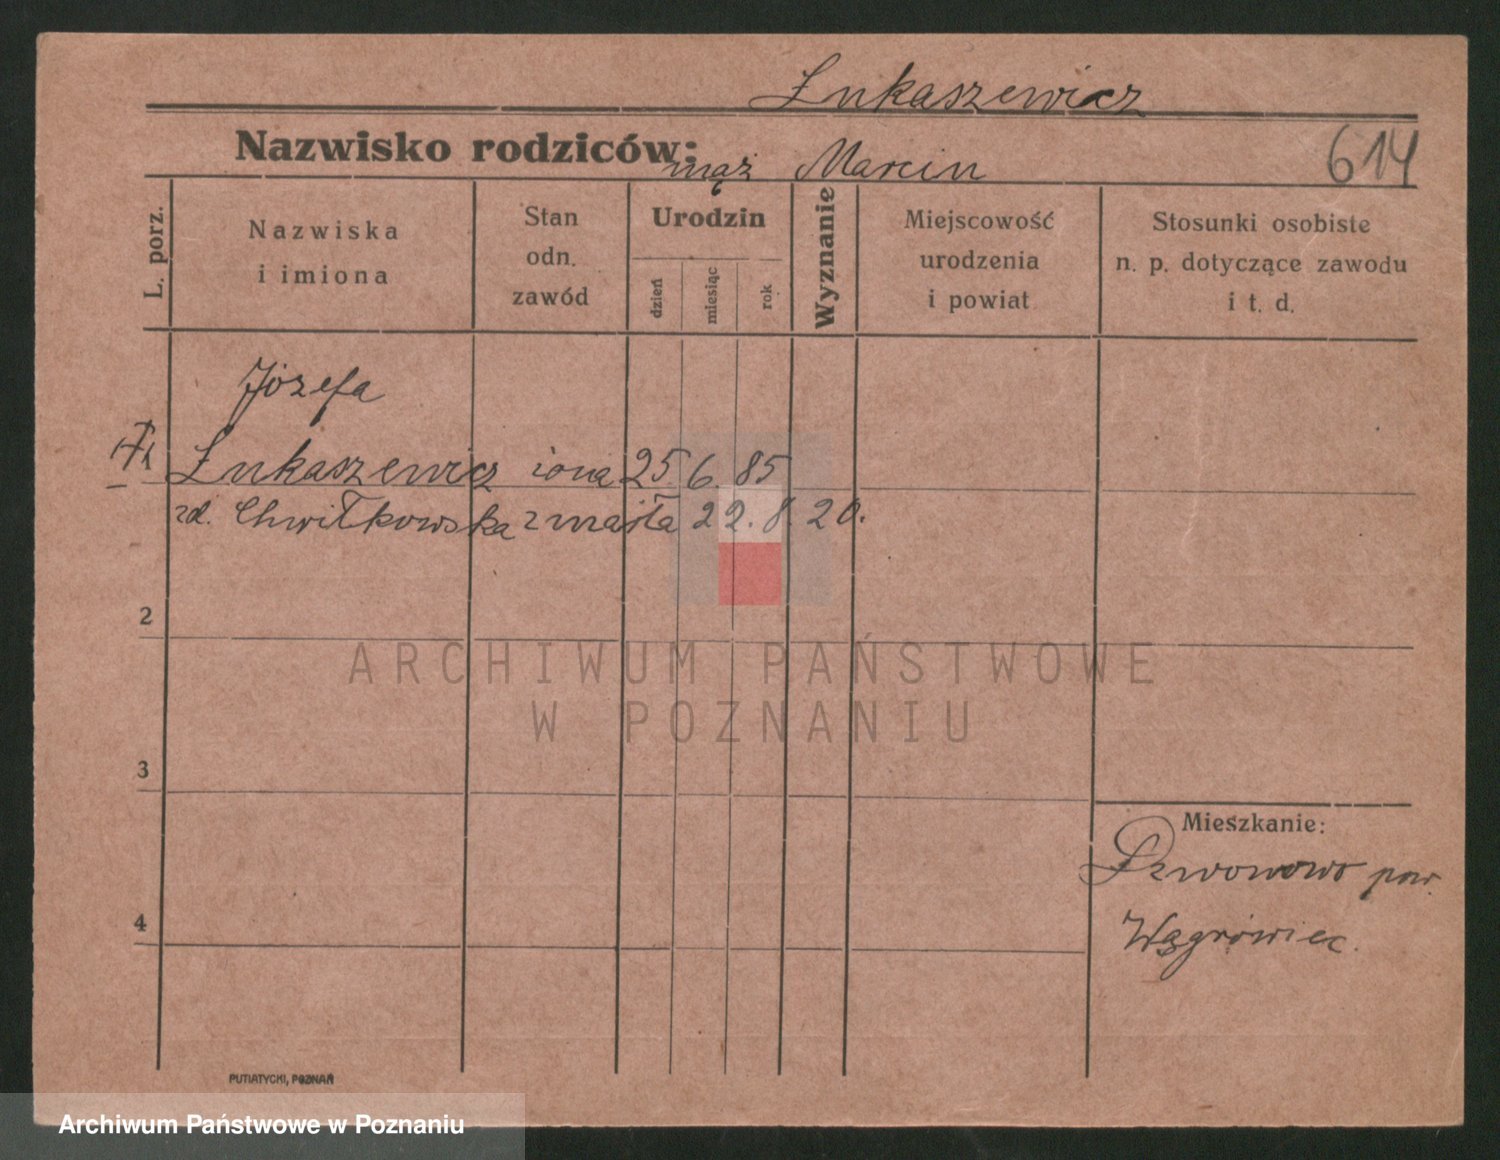 Łukaszewicz
Nazwisko rodziców:
mąż Marcin
614
L. porz.
Nazwiska
i imiona
Stan
odn.
zawód
Urodzin
dzień
miesiąc
rok
Wyznanie
Miejscowość
urodzenia
i powiat
Stosunki osobiste
n. p. dotyczące zawodu
i t. d.
Józefa
1 Łukaszewicz żona 25. 6. 85
zd. Chwiłkowska zmarła 22. 8. 20.
2
ARCHIWUM PAŃSTWOWE
W POZNANIU
3
Mieszkanie:
Dzwonowo pow.
4
Wągrówiec.
PUTIATYCKI, POZNAŃ
Archiwum Państwowe w Poznaniu